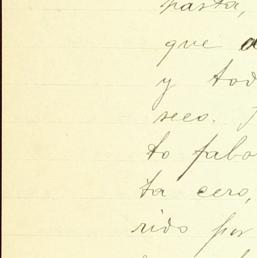 hasta,
que a
y tod
seco.
to fabo
ta cero,
rido por